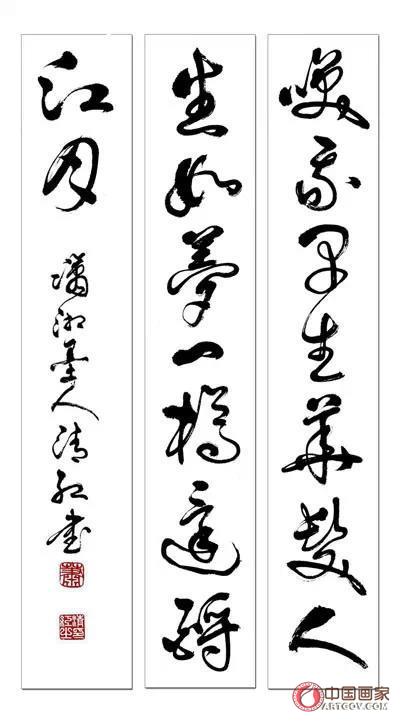 咲我早生華髮人
生如夢一樽還酹
江月
瀟湘墨人清紅書
蕭
中国画家
ARTGOV.COM